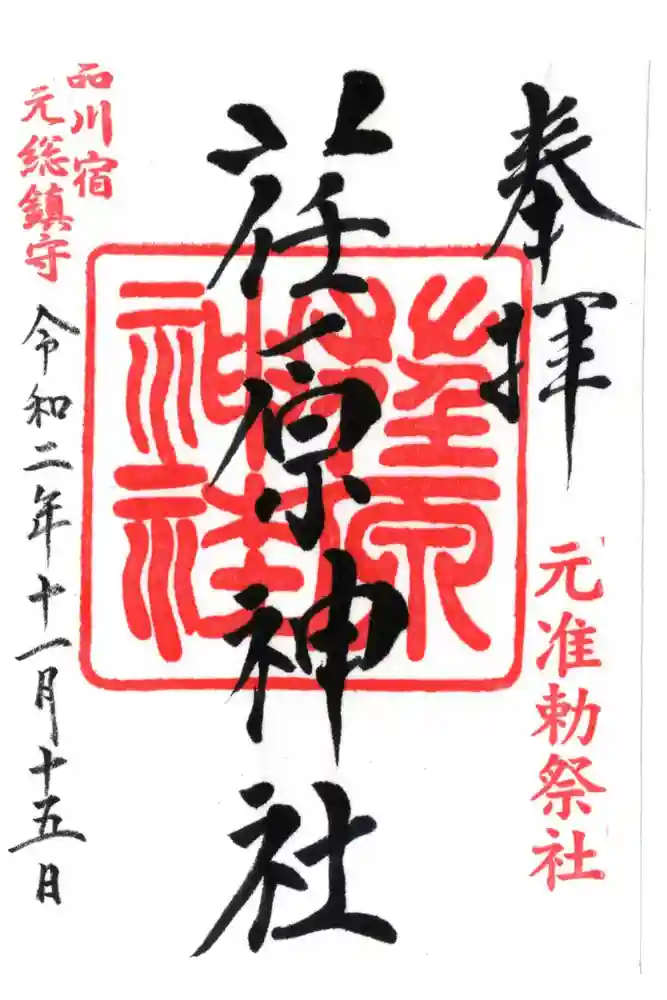 奉拝
元准勅祭社
荏原神社
品川宿
元総鎮守
令和二年十一月十五日